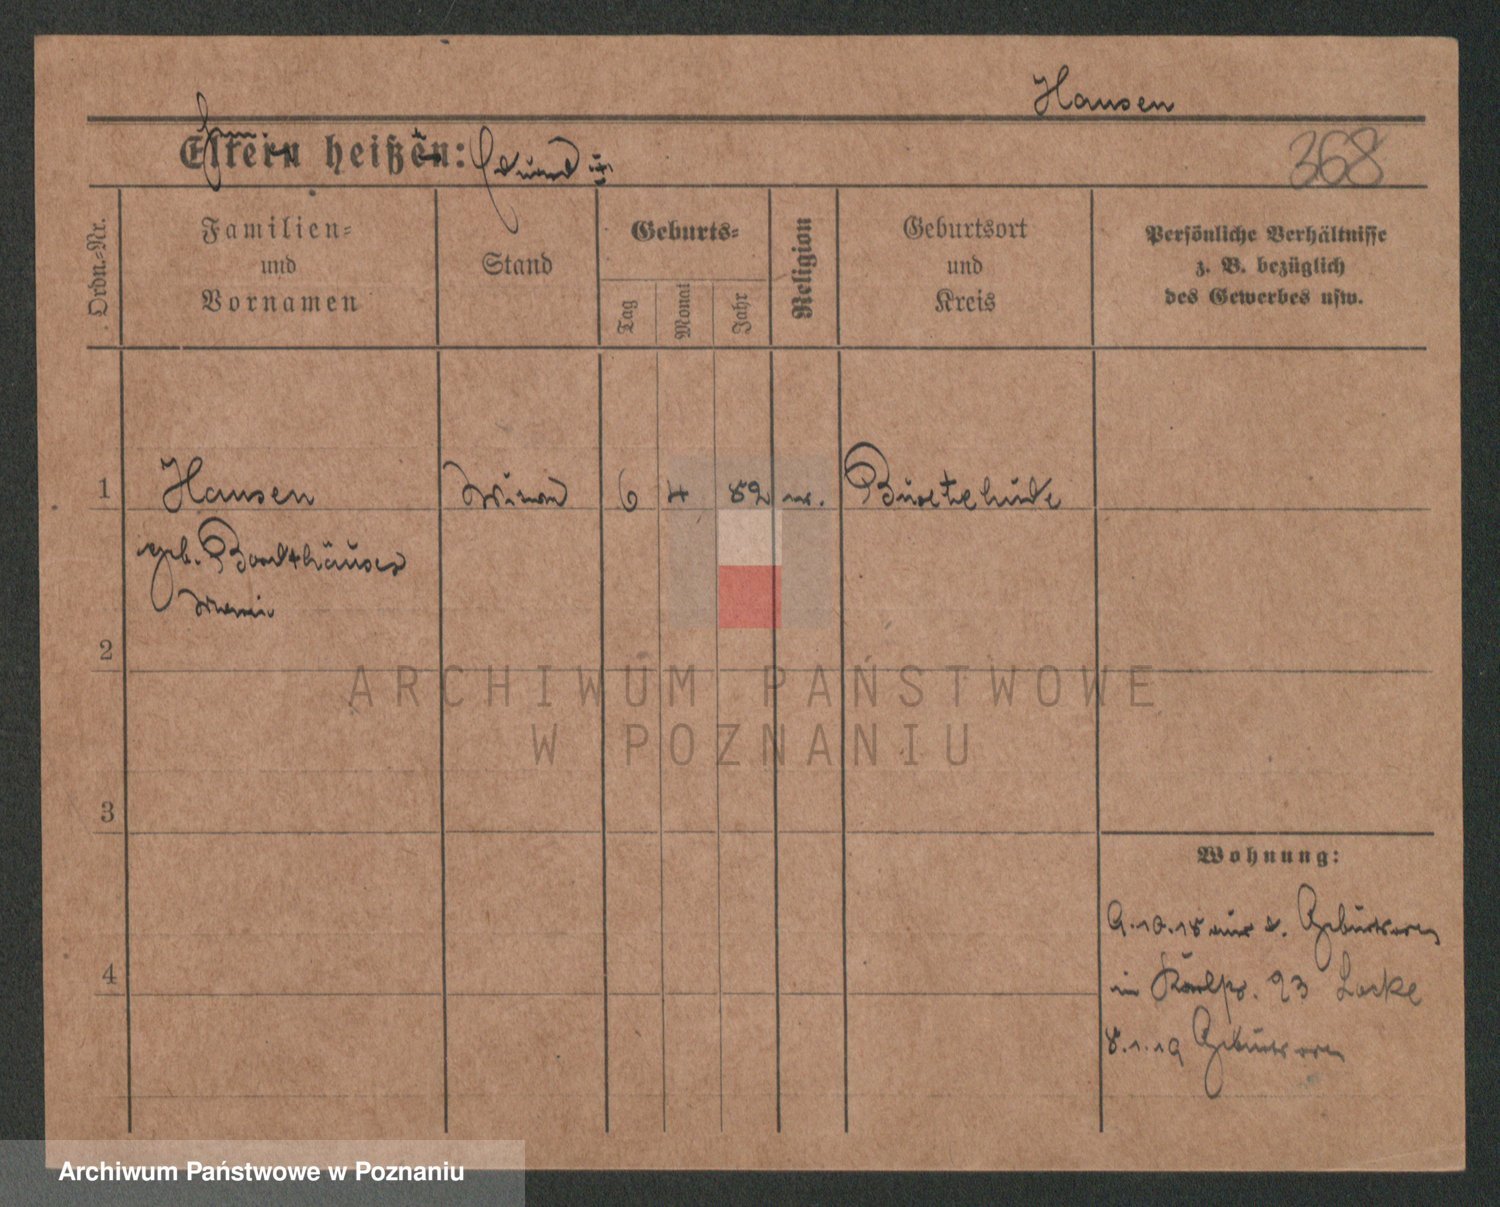 Hansen
Eltern heißen:
368
Ordn.-Nr.
Familien-
und
Vornamen
Stand
Geburts-
Tag
Monat
Jahr
Religion
Geburtsort
und
Kreis
Persönliche Verhältnisse
z. B. bezüglich
des Gewerbes usw.
1
Hansen
6
4
52
Buxtehude
geb.
2
ARCHIWUM PAŃSTWOWE
W POZNANIU
3
Wohnung:
9.10.18 aus d.
4
in 23 Locke
8.1.19
Archiwum Państwowe w Poznaniu